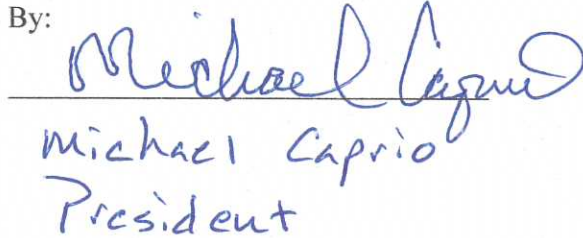 By:
Michael Caprio
Michael Caprio
President